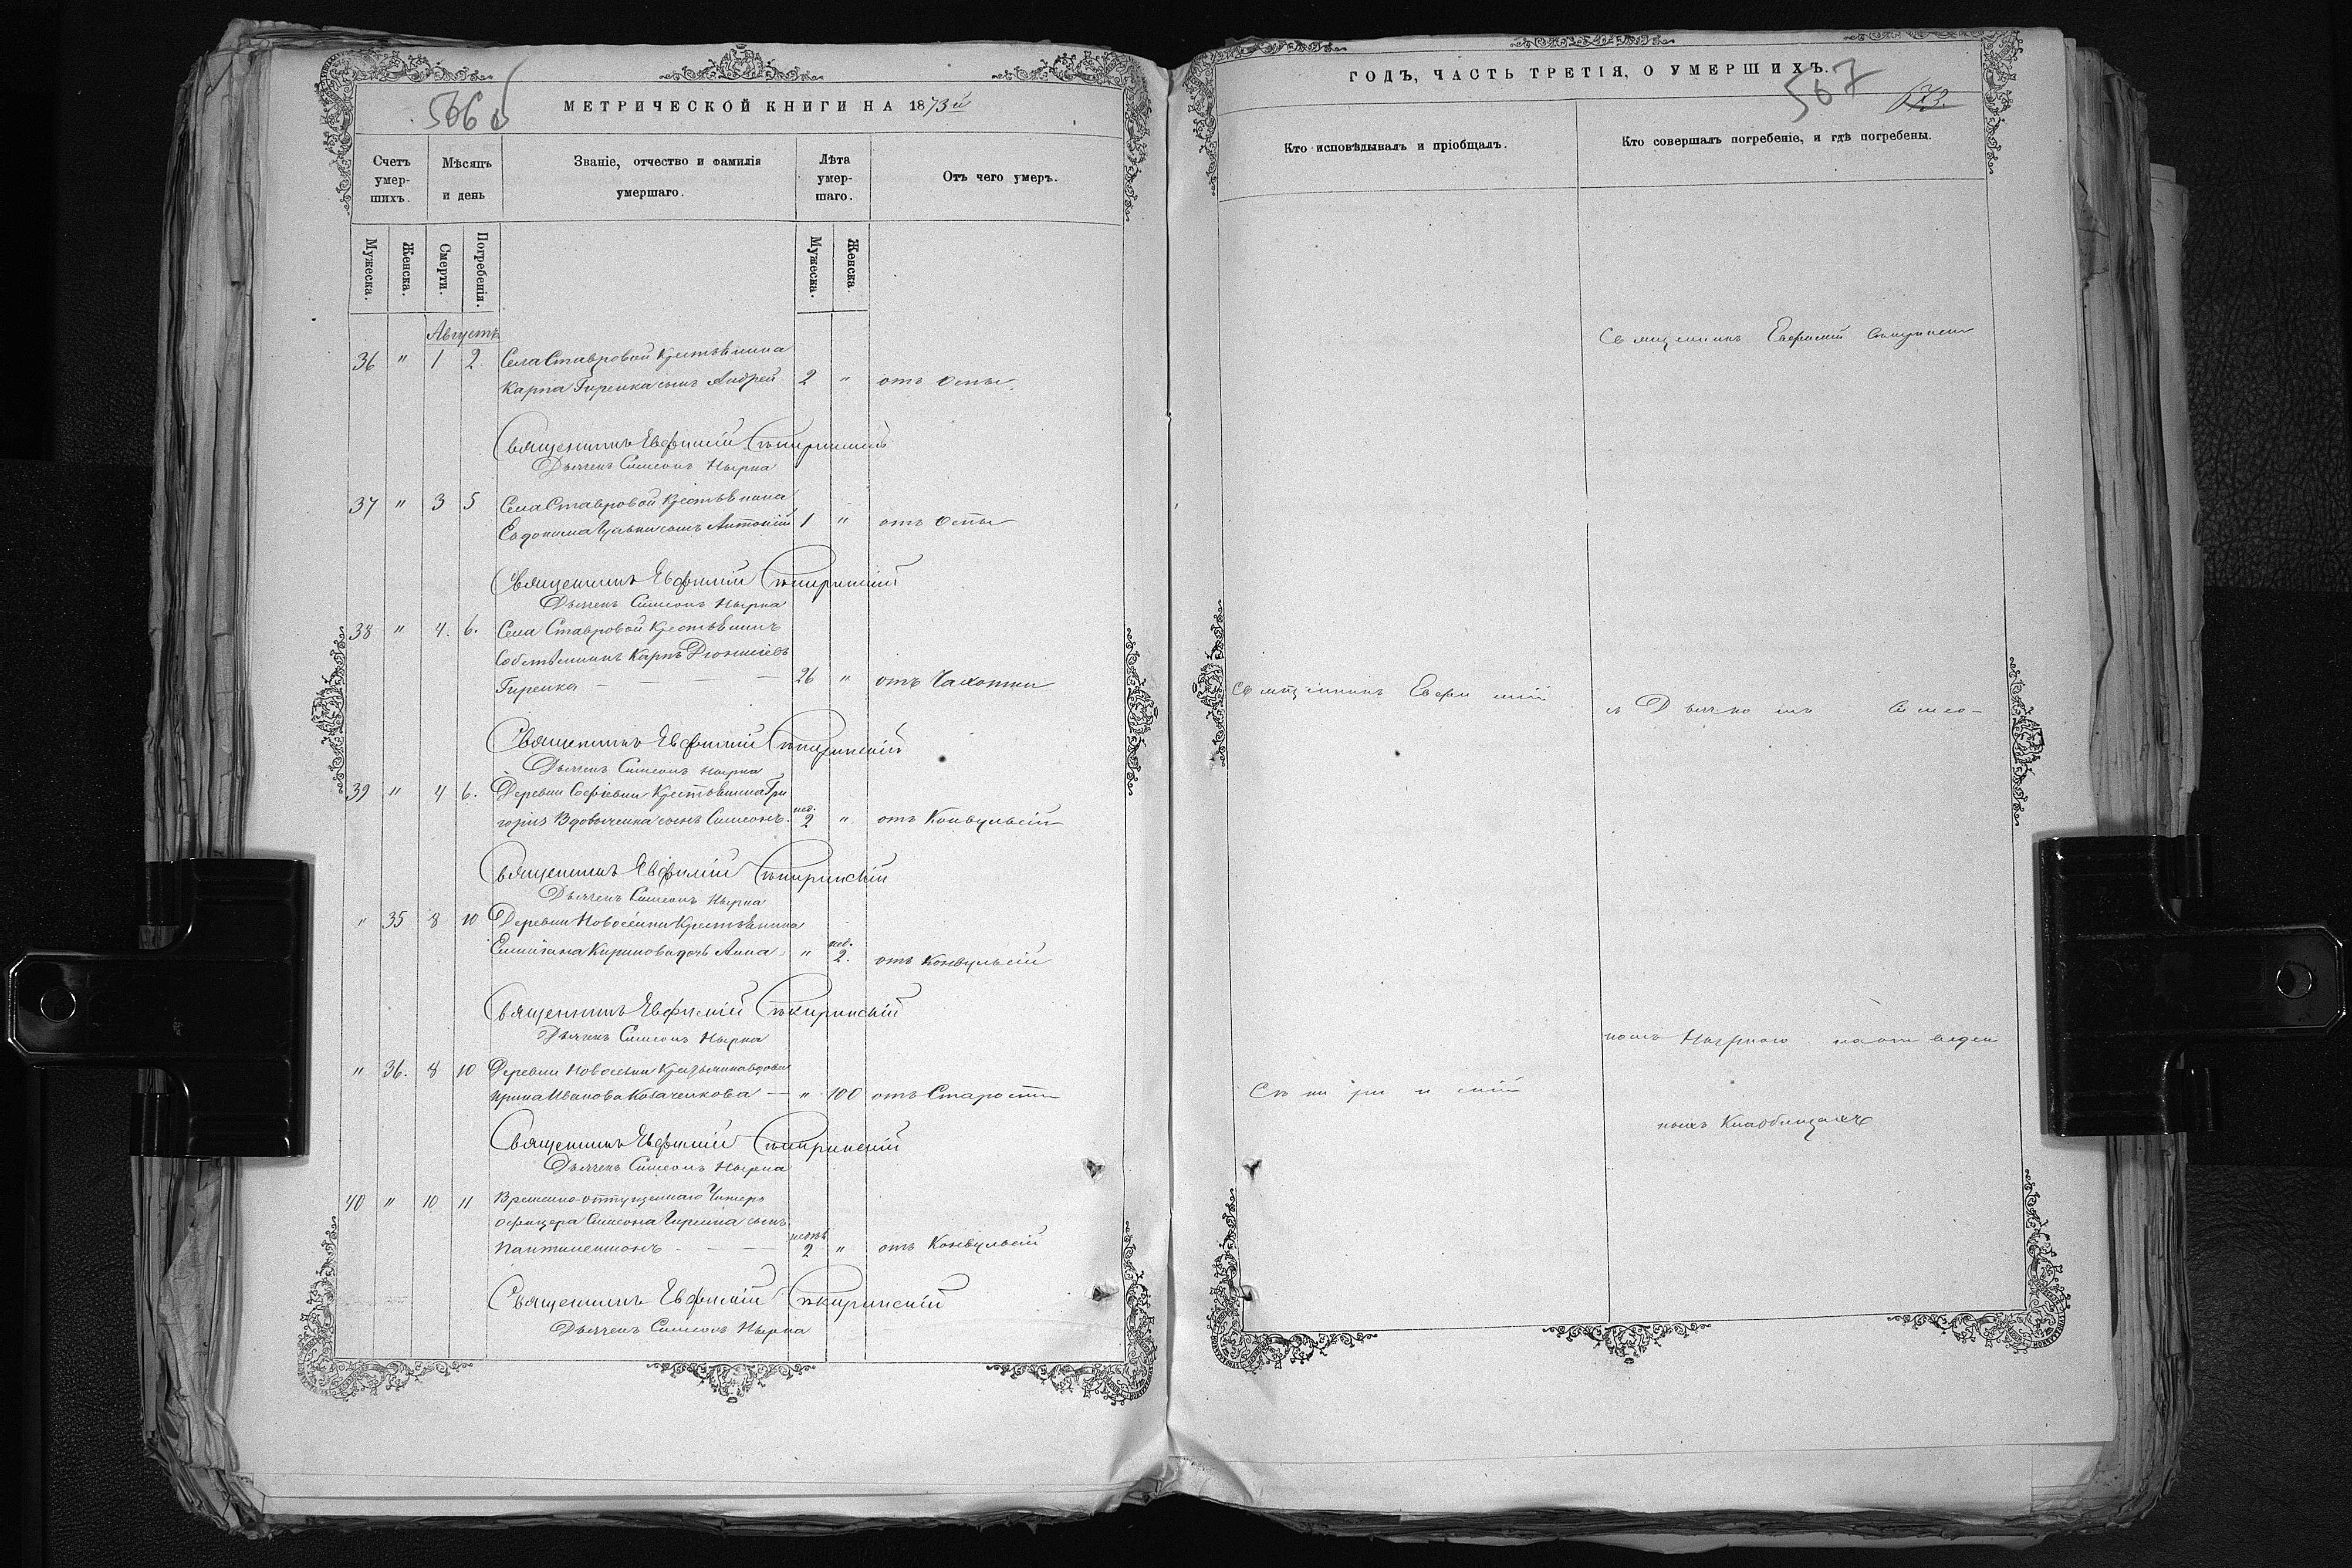 566 об
МЕТРИЧЕСКОЙ КНИГИ НА 1873й
Счетъ умер-шихъ.
Мѣсяцъ и день
Званіе, отчество и фамилія умершаго.
Лѣта умер-шаго.
Отъ чего умеръ.
Мужеска.
Женска.
Смерти.
Погребенія.
Мужеска.
Женска.
Августъ
36 " 1 2. Села Ставровой Крестьянина
Карпа Гиренка сынъ Андрей. 2 " отъ Оспы.
Священникъ Евфимій Скиринскій
Дьячекъ Симеонъ Нырка
37 " 3 5 Села Ставровой Крестьянина
Евдокима сынъ Антоній 1 " отъ Оспы
Священникъ Евфимій Скиринскій
Дьячекъ Симеонъ Нырка
38 " 4. 6. Села Ставровой Крестьянинъ
Собственникъ Карпъ
Гиренка — — — — 26 " отъ Чахотки
Священникъ Евфимій Скиринскій
Дьячекъ Симеонъ Нырка
39 " 4 6. Деревни Софіевки Крестьянина Гри
горія Вдовыченка сынъ Симеонъ. нед. 2 " отъ Конвульсіи
Священникъ Евфимій Скиринскій
Дьячекъ Симеонъ Нырка
" 35 8 10 Деревни Новосёлки Крестьянина
дочь Анна - " нед. 2. отъ Конвульсіи
Священникъ Евфимій Скиринскій
Дьячекъ Симеонъ Нырка
" 36. 8 10 Деревни Новосёлки вдова
Ирина Иванова Козаченкова — " 100 отъ Старости
Священникъ Евфимій Скиринскій
Дьячекъ Симеонъ Нырка
40 " 10 11 Временно-отпущеннаго Унтеръ
офицера Симеона Гиренка сынъ
Пантилеимонъ - — — 2 " отъ Конвульсій
Священникъ Евфимій Скиринскій
Дьячекъ Симеонъ Нырка
ГОДЪ, ЧАСТЬ ТРЕТІЯ, О УМЕРШИХЪ.
567
Кто исповѣдывалъ и пріобщалъ.
Кто совершалъ погребеніе, и гдѣ погребены.
Священникъ Евфимій Скиринскій
Священникъ Евфимій
съ Дьячкомъ Симео-
номъ Ныркою на отведен
Скиринскій
номъ Кладбищахъ